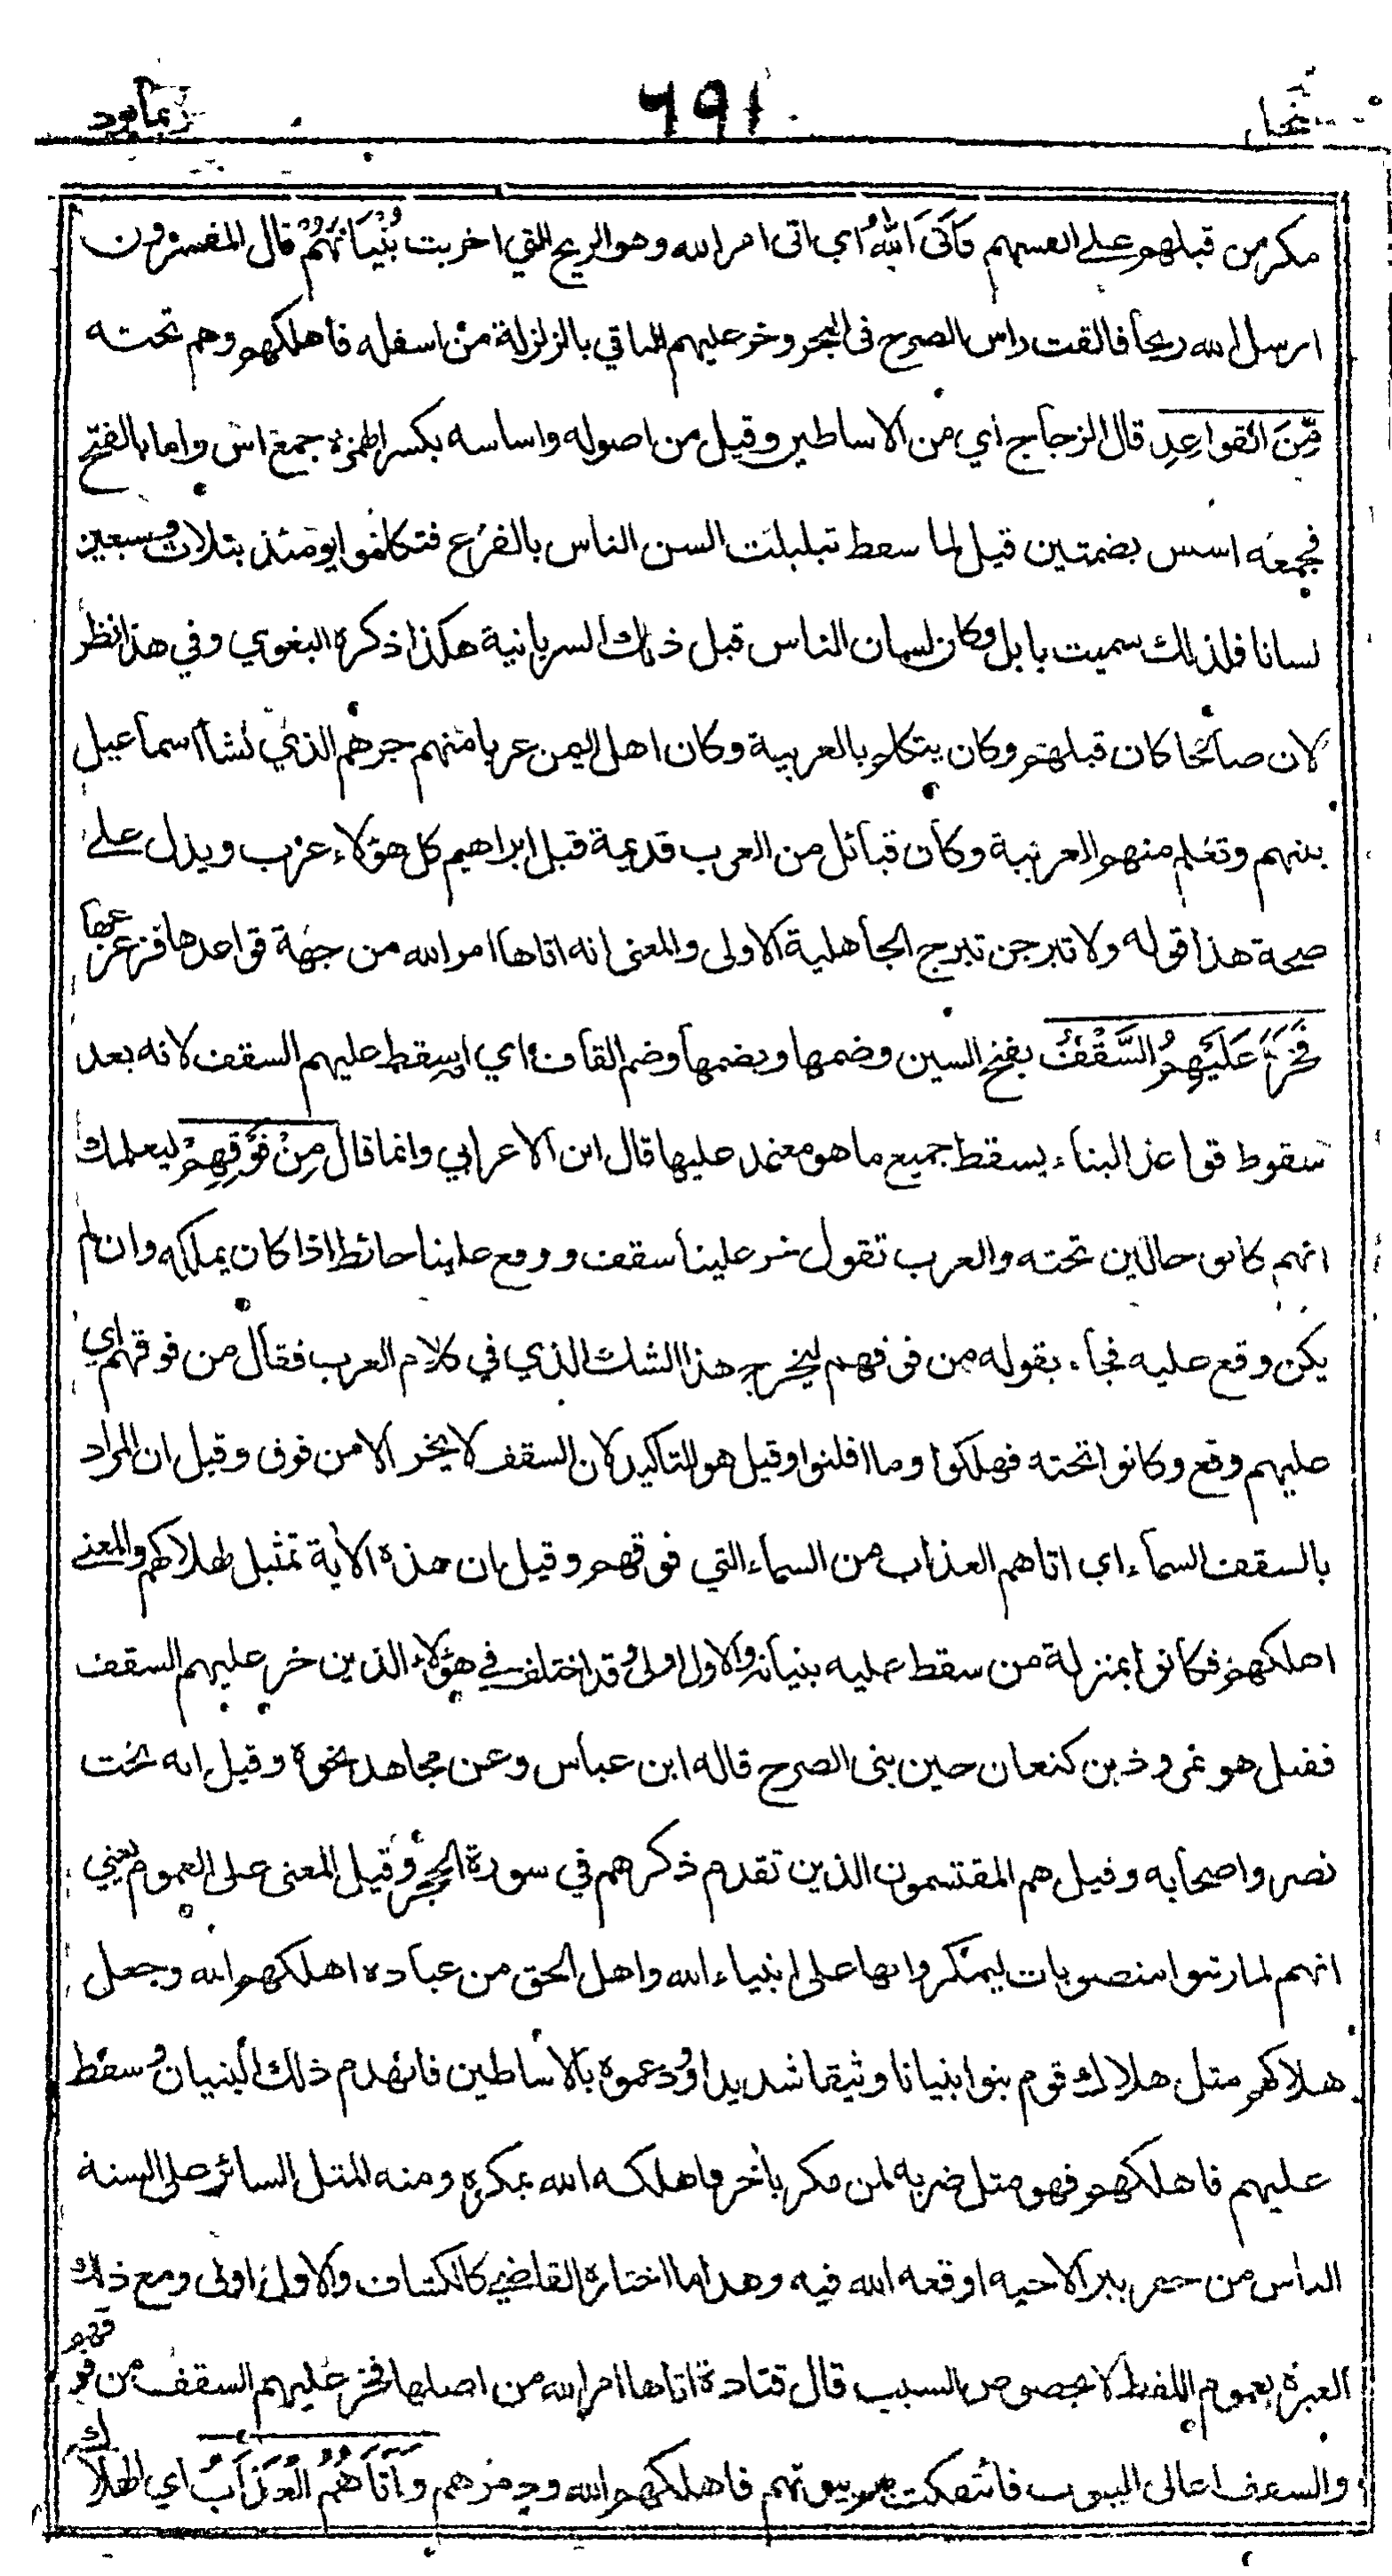 النحل ٦٩١ ربما يود
مكر من قبلهم على انفسهم فَأَتَى اللَّهُ اي اتى امر الله وهو الريح التي اخربت بُنْيَانَهُمْ قال المفسرون
ارسل الله ريحا فالقت راس الصرح فى البحر وخر عليهم الباقي بالزلزلة من اسفله فاهلكهم وهم تحته
مِّنَ الْقَوَاعِدِ قال الزجاج اي من الاساطير وقيل من اصوله واساسه بكسر الهمزة جمع اس واما بالفتح
فجمعه اسس بضمتين قيل لما سقط تبلبلت السن الناس بالفزع فتكلموا يومئذ بثلاث وسبعين
لسانا فلذلك سميت بابل وكان لسان الناس قبل ذلك السريانية هكذا ذكره البغوي وفي هذا نظر
لان صالحا كان قبلهم وكان يتكلم بالعربية وكان اهل اليمن عربا منهم جرهم الذي نشأ اسماعيل
بينهم وتعلم منهم العربية وكان قبائل من العرب قديمة قبل ابراهيم كل هؤلاء عرب ويدل على
صحة هذا قوله ولا تبرجن تبرج الجاهلية الاولى والمعنى انه اتاها امر الله من جهة قواعدها فزعزعها
فَخَرَّ عَلَيْهِمُ السَّقْفُ بفتح السين وضمها وبضمها وضم القاف اي اسقط عليهم السقف لانه بعد
سقوط قواعد البناء يسقط جميع ما هو معتمد عليها قال ابن الاعرابي وانما قال مِنْ فَوْقِهِمْ ليعلمك
انهم كانوا حالين تحته والعرب تقول خر علينا سقف ووقع علينا حائط اذا كان يملكه وان لم
يكن وقع عليه فجاء بقوله من فوقهم ليخرج هذا الشك الذي في كلام العرب فقال من فوقهم اي
عليهم وقع وكانوا تحته فهلكوا وما افلتوا وقيل هو للتاكيد لان السقف لا يخر الا من فوق وقيل ان المراد
بالسقف السماء اي اتاهم العذاب من السماء التي فوقهم وقيل ان هذه الاية تمثيل لهلاكهم والمعنى
اهلكهم فكانوا بمنزلة من سقط عليه بنيانه والاول اولى وقد اختلف في هؤلاء الذين خر عليهم السقف
فقيل هو نمروذ بن كنعان حين بنى الصرح قاله ابن عباس وعن مجاهد نحوه وقيل انه بخت
نصر واصحابه وقيل هم المقتسمون الذين تقدم ذكرهم في سورة الحجر وقيل المعنى على العموم يعني
انهم لما رتبوا منصوبات ليمكروا بها على انبياء الله واهل الحق من عباده اهلكهم الله وجعل
هلاكهم مثل هلاك قوم بنوا بنيانا وثيقا شديدا ودعموه بالاساطين فانهدم ذلك البنيان وسقط
عليهم فاهلكهم فهو مثل ضربه لمن مكر بأخر فاهلكه الله بمكره ومنه المثل السائر على السنة
الناس من حفر بيرا لاخيه اوقعه الله فيه وهذا ما اختاره القاضي كالكشاف والاول اولى ومع ذلك
العبرة بعموم اللفظ لا بخصوص السبب قال قتادة اتاها امر الله من اصلها فخر عليهم السقف من فوقهم
والسقف اعالى البيوت فائتفكت بهم بيوتهم فاهلكهم الله ودمرهم وَأَتَاهُمُ الْعَذَابُ اي الهلاك